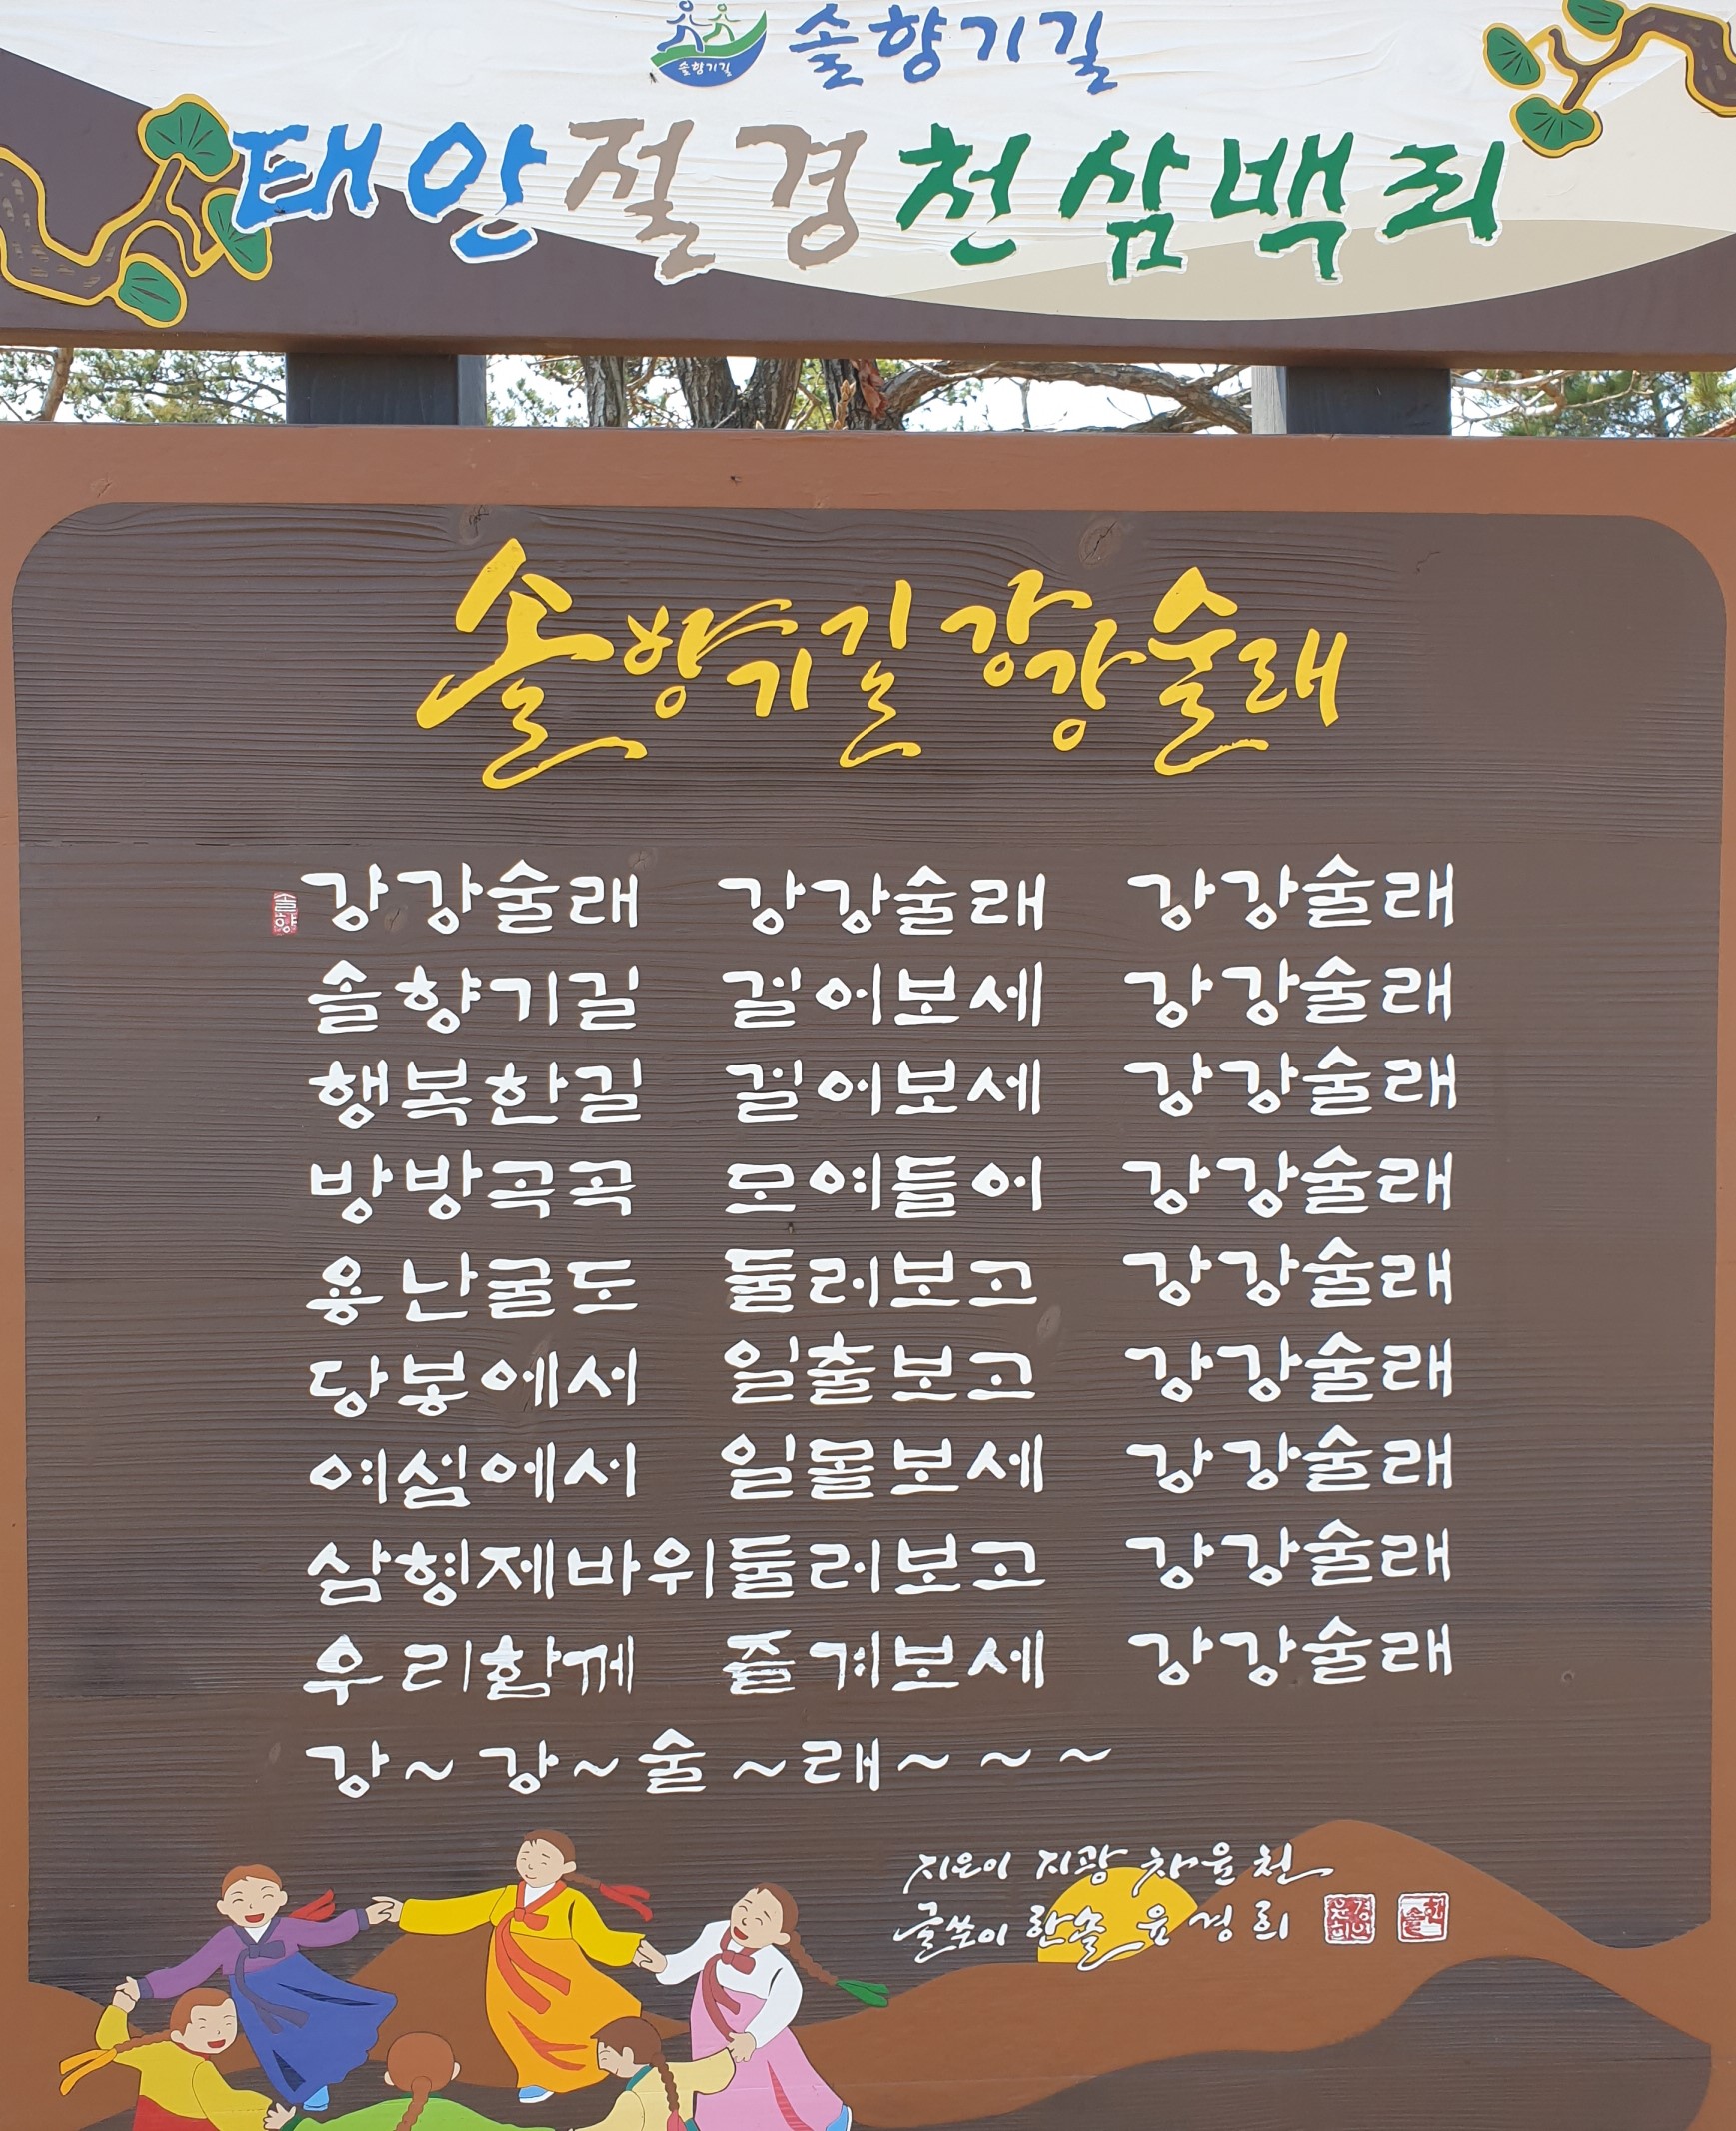 솔향기길 솔향기길
태안절경천삼백리
솔향기길 강강술래
솔향 강강술래 강강술래 강강술래
솔향기길 걸어보세 강강술래
행복한길 걸어보세 강강술래
방방곡곡 모여들어 강강술래
용난굴도 둘러보고 강강술래
당봉에서 일출보고 강강술래
여섬에서 일몰보세 강강술래
삼형제바위둘러보고 강강술래
우리함께 즐겨보세 강강술래
강~강~술~래~~~
지은이 지광 차윤천
글쓴이 한솔 윤경희